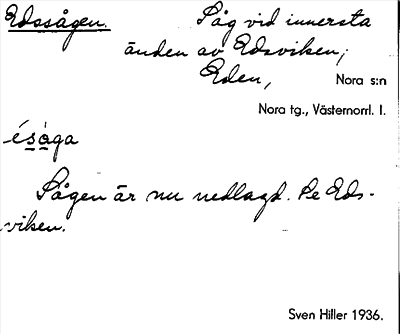 Edssågen. Såg vid innersta
änden av Edsviken,
Eden, Nora s:n
Nora tg., Västernorrl. l.
ésåga
Sågen är nu nedlagd. Se Eds-
viken.
Sven Hiller 1936.